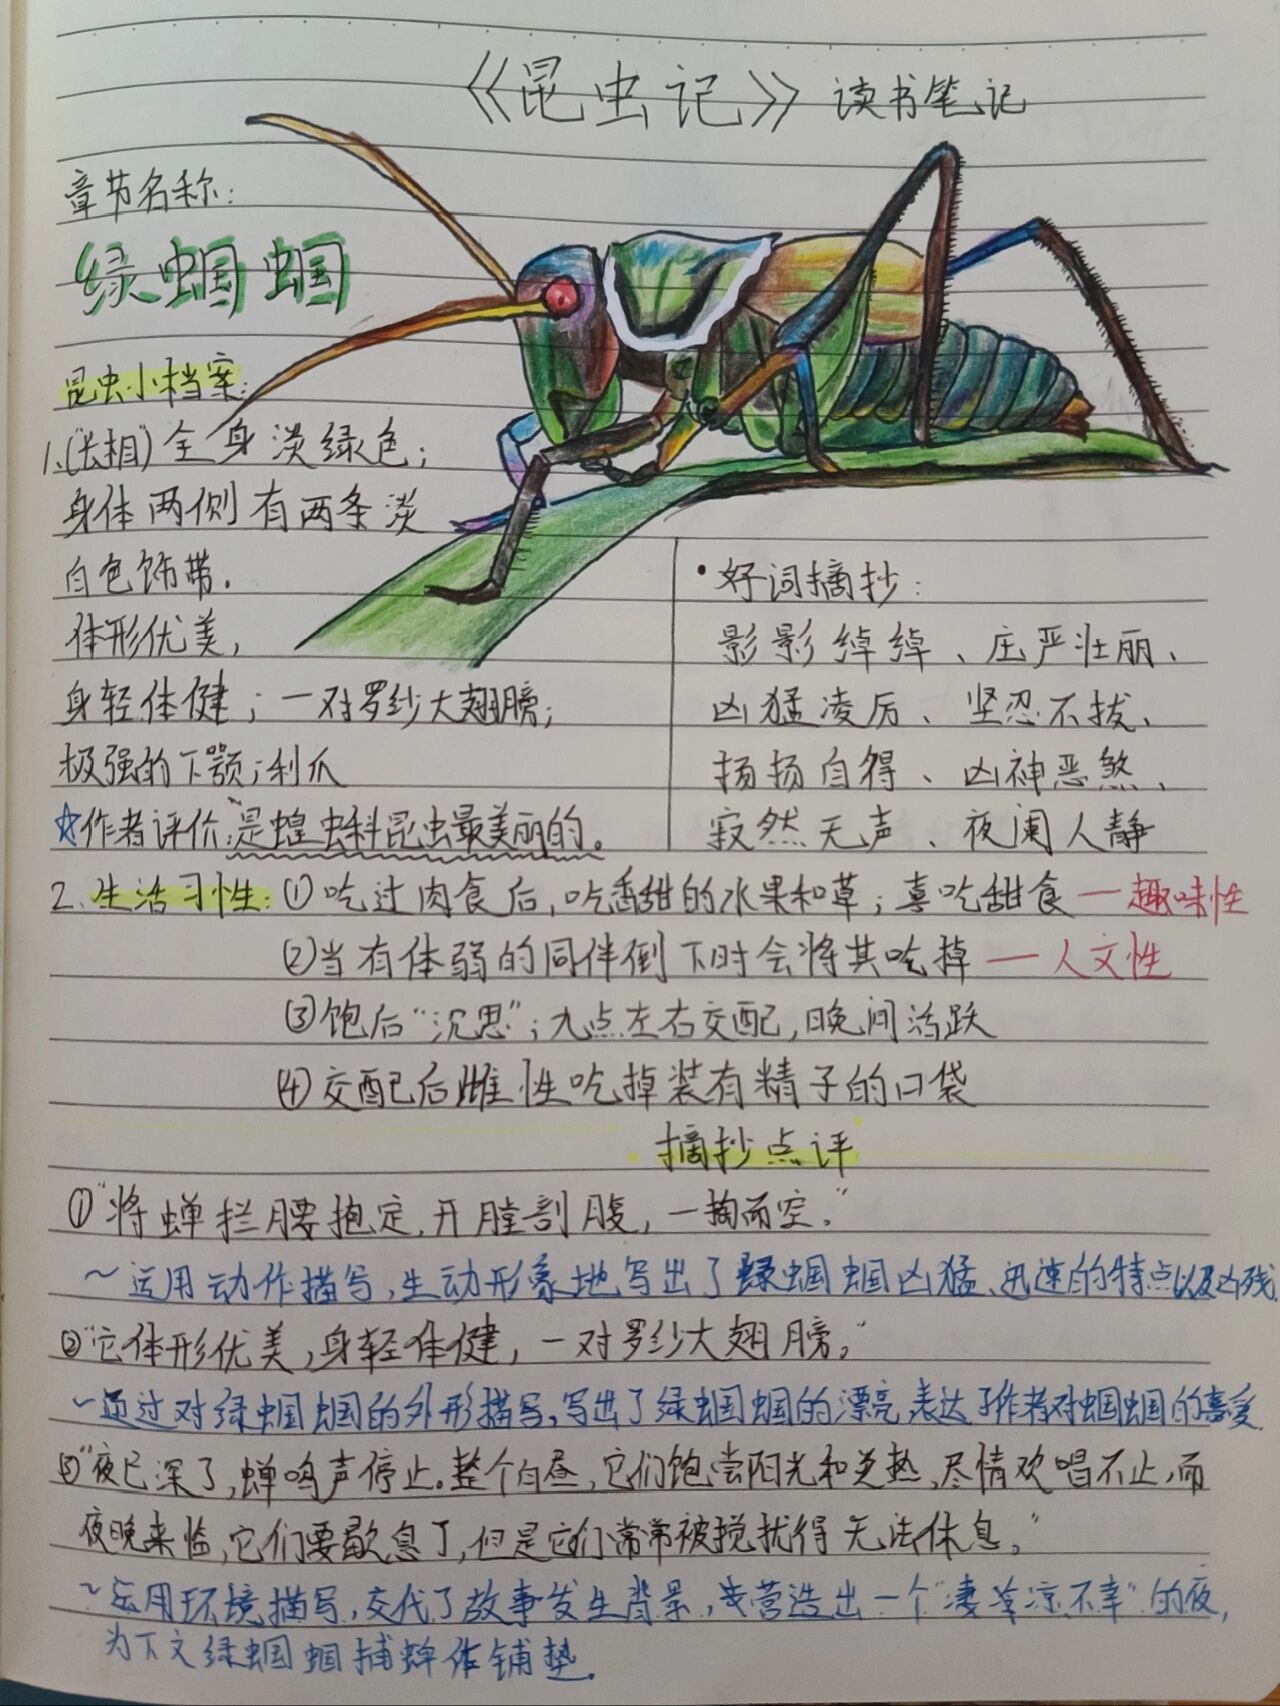 《昆虫记》读书笔记
章节名称:
绿蝈蝈
昆虫小档案:
1.(长相)全身淡绿色;
身体两侧有两条淡
白色饰带.
体形优美,
身轻体健;一对罗纱大翅膀;
极强的下颚;利爪
☆作者评价:是蝗虫科昆虫最美丽的。
·好词摘抄:
影影绰绰、庄严壮丽、
凶猛凌厉、坚忍不拔、
扬扬自得、凶神恶煞、
寂然无声、夜阑人静
2.生活习性:①吃过肉食后,吃香甜的水果和草;喜吃甜食—趣味性
②当有体弱的同伴倒下时会将其吃掉—人文性
③饱后“沉思”;九点左右交配,晚间活跃
④交配后雌性吃掉装有精子的口袋
摘抄点评
①“将蝉拦腰抱定,开膛剖腹,一掏而空.”
~运用动作描写,生动形象地写出了绿蝈蝈凶猛、迅速的特点以及凶残.
②“它体形优美,身轻体健,一对罗纱大翅膀。”
~通过对绿蝈蝈的外形描写,写出了绿蝈蝈的漂亮表达了作者对蝈蝈的喜爱.
③“夜已深了,蝉鸣声停止。整个白昼,它们饱尝阳光和炎热,尽情欢唱不止,而
夜晚来临,它们要歇息了,但是它们常常被搅扰得无法休息。”
~运用环境描写,交代了故事发生背景,营造出一个“凄冷凉不幸”的夜,
为下文绿蝈蝈捕蝉作铺垫.